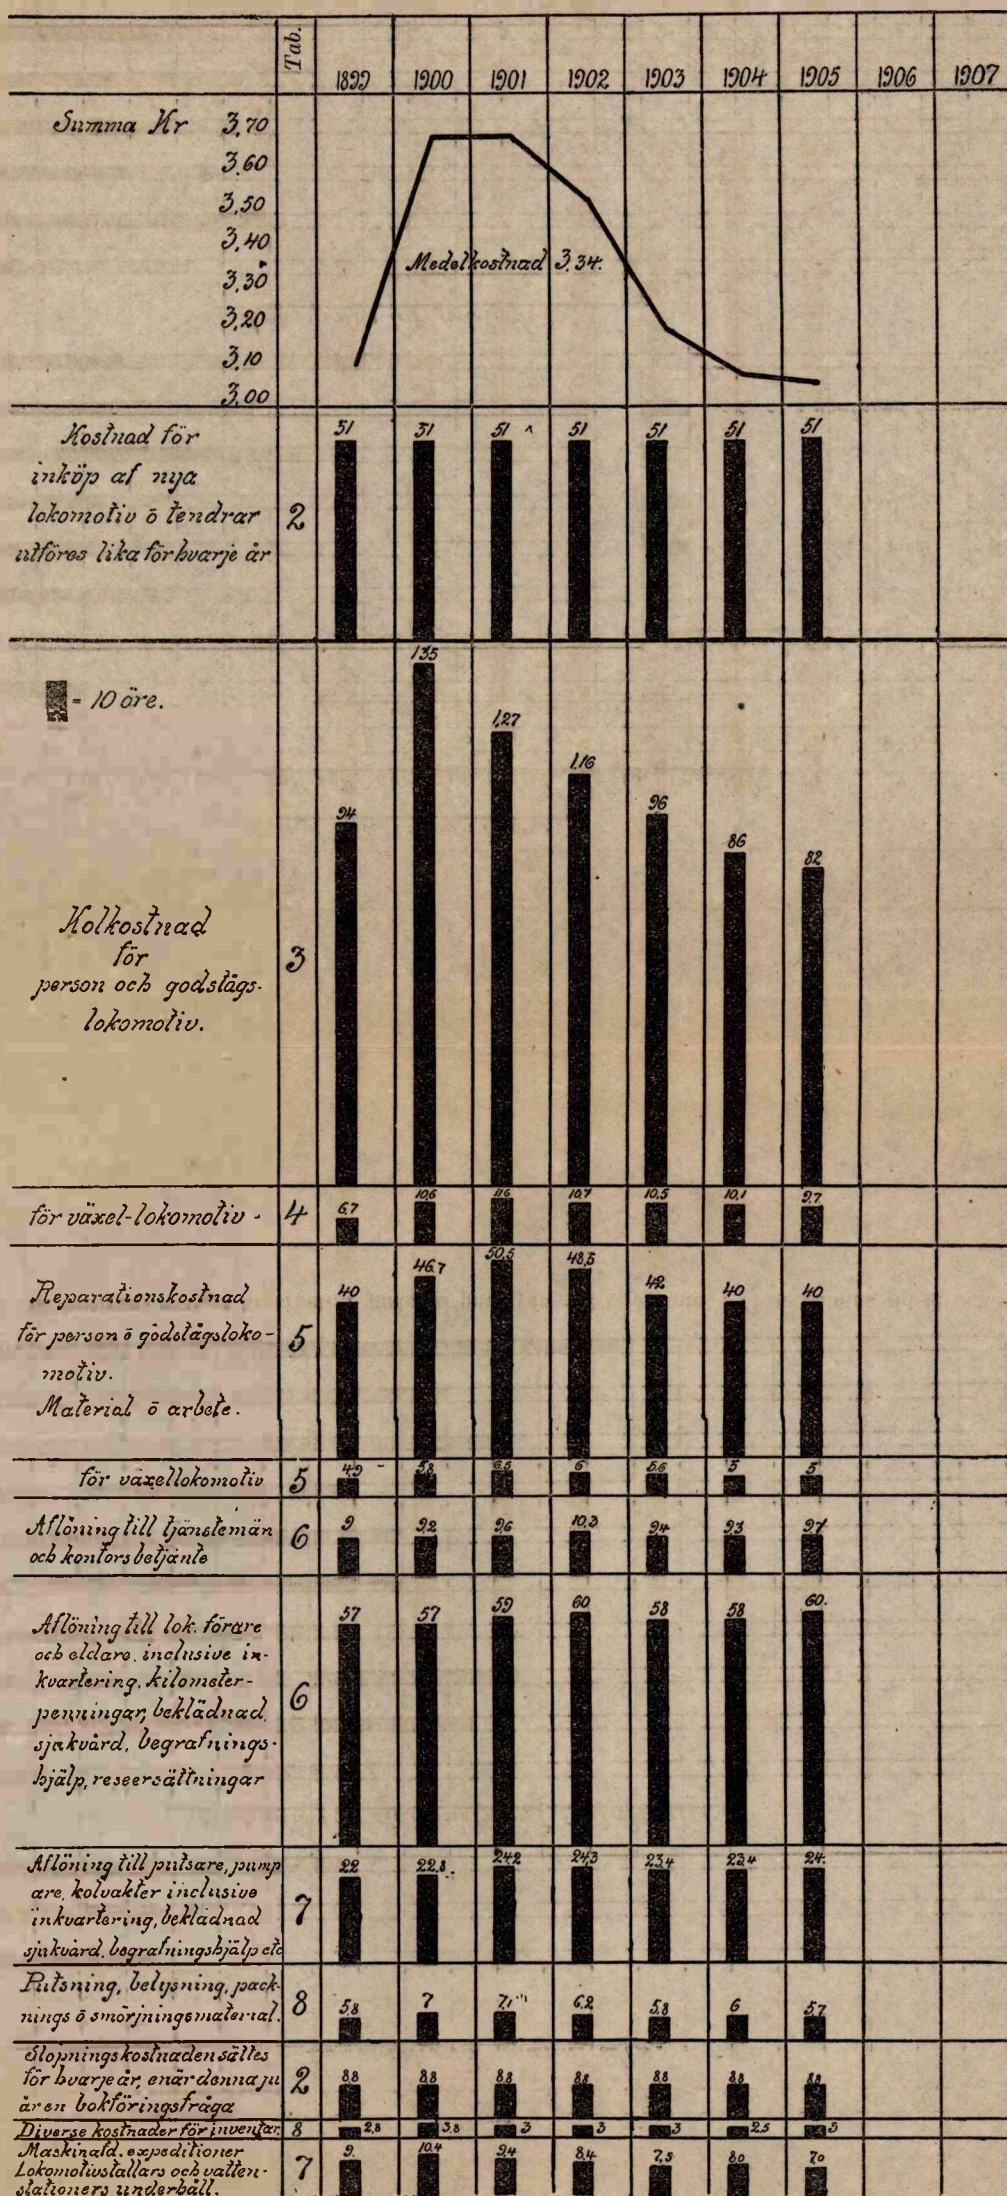 Tab. 1899 1900 1901 1902 1903 1904 1905 1906 1907
Summa Kr 3,70
3,60
3,50
3,40
3,30
3,20
3,10
3,00
Medelkostnad 3,34.
51 51 51 51 51 51 51
Kostnad för
inköp af nya
lokomotiv ō tendrar 2
utföres lika för hvarje år
= 10 öre.
94 1,35 1,27 1,16 96 86 82
Kolkostnad
för
person och godstågs-
lokomotiv.
3
för växel-lokomotiv - 4 6,7 10,6 11,6 10,7 10,5 10,1 9,7
Reparationskostnad
för person ō godstågsloko-
motiv.
Material ō arbete.
5 40 46,7 50,5 48,5 42 40 40
för växellokomotiv 5 4,9 5,8 6,5 6 5,6 5 5
Aflöning till tjänstemän
och kontorsbetjänte
6 9 9,2 9,6 10,3 9,4 9,3 9,7
Aflöning till lok. förare
och eldare, inclusive in-
kvartering, kilometer-
penningar, beklädnad,
sjukvård, begrafnings-
hjälp, reseersättningar
6 57 57 59 60 58 58 60.
Aflöning till putsare, pump
are, kolvakter inclusive
inkvartering, beklädnad
sjukvård, begrafningshjälp etc
7 22 22,8. 24,2 24,3 23,4 23,4 24.
Putsning, belysning, pack-
nings ō smörjningsmaterial.
8 5,8 7 7,1 6,2 5,8 6 5,7
Slopningskostnaden sättes
för hvarje år, enär denna ju
är en bokföringsfråga
2 8,8 8,8 8,8 8,8 8,8 8,8 8,8
Diverse kostnader för inventar. 8 2,8 3,8 3 3 3 2,5 3
Maskinafd. expeditioner
Lokomotivstallars och vatten-
stationers underhåll.
7 9. 10,4 9,4 8,4 7,5 8,0 7,0